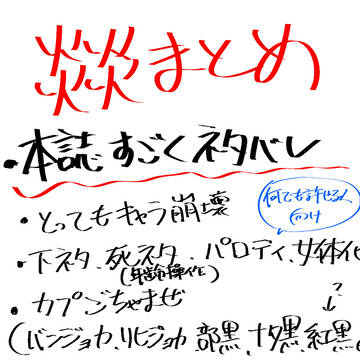 燚まとめ
・本誌すごくネタバレ
・とってもキャラ崩壊
何でも許せる人向け
・下ネタ、死ネタ、パロディ、女体化
(年齢操作)
?
・カプごちゃまぜ
(バンジョカ、リヒジョカ、部黒、十夕黒、紅黒